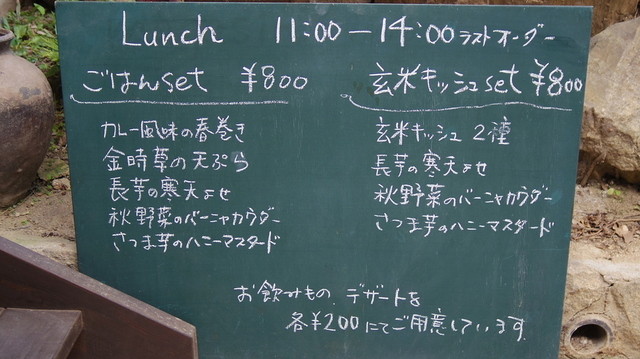 Lunch 11:00-14:00 ラストオーダー
ごはんset ¥800
カレー風味の春巻き
金時草の天ぷら
長芋の寒天よせ
秋野菜のバーニャカウダー
さつま芋のハニーマスタード
玄米キッシュset ¥800
玄米キッシュ 2種
長芋の寒天よせ
秋野菜のバーニャカウダー
さつま芋のハニーマスタード
お飲みもの、デザートを
各¥200にてご用意しています